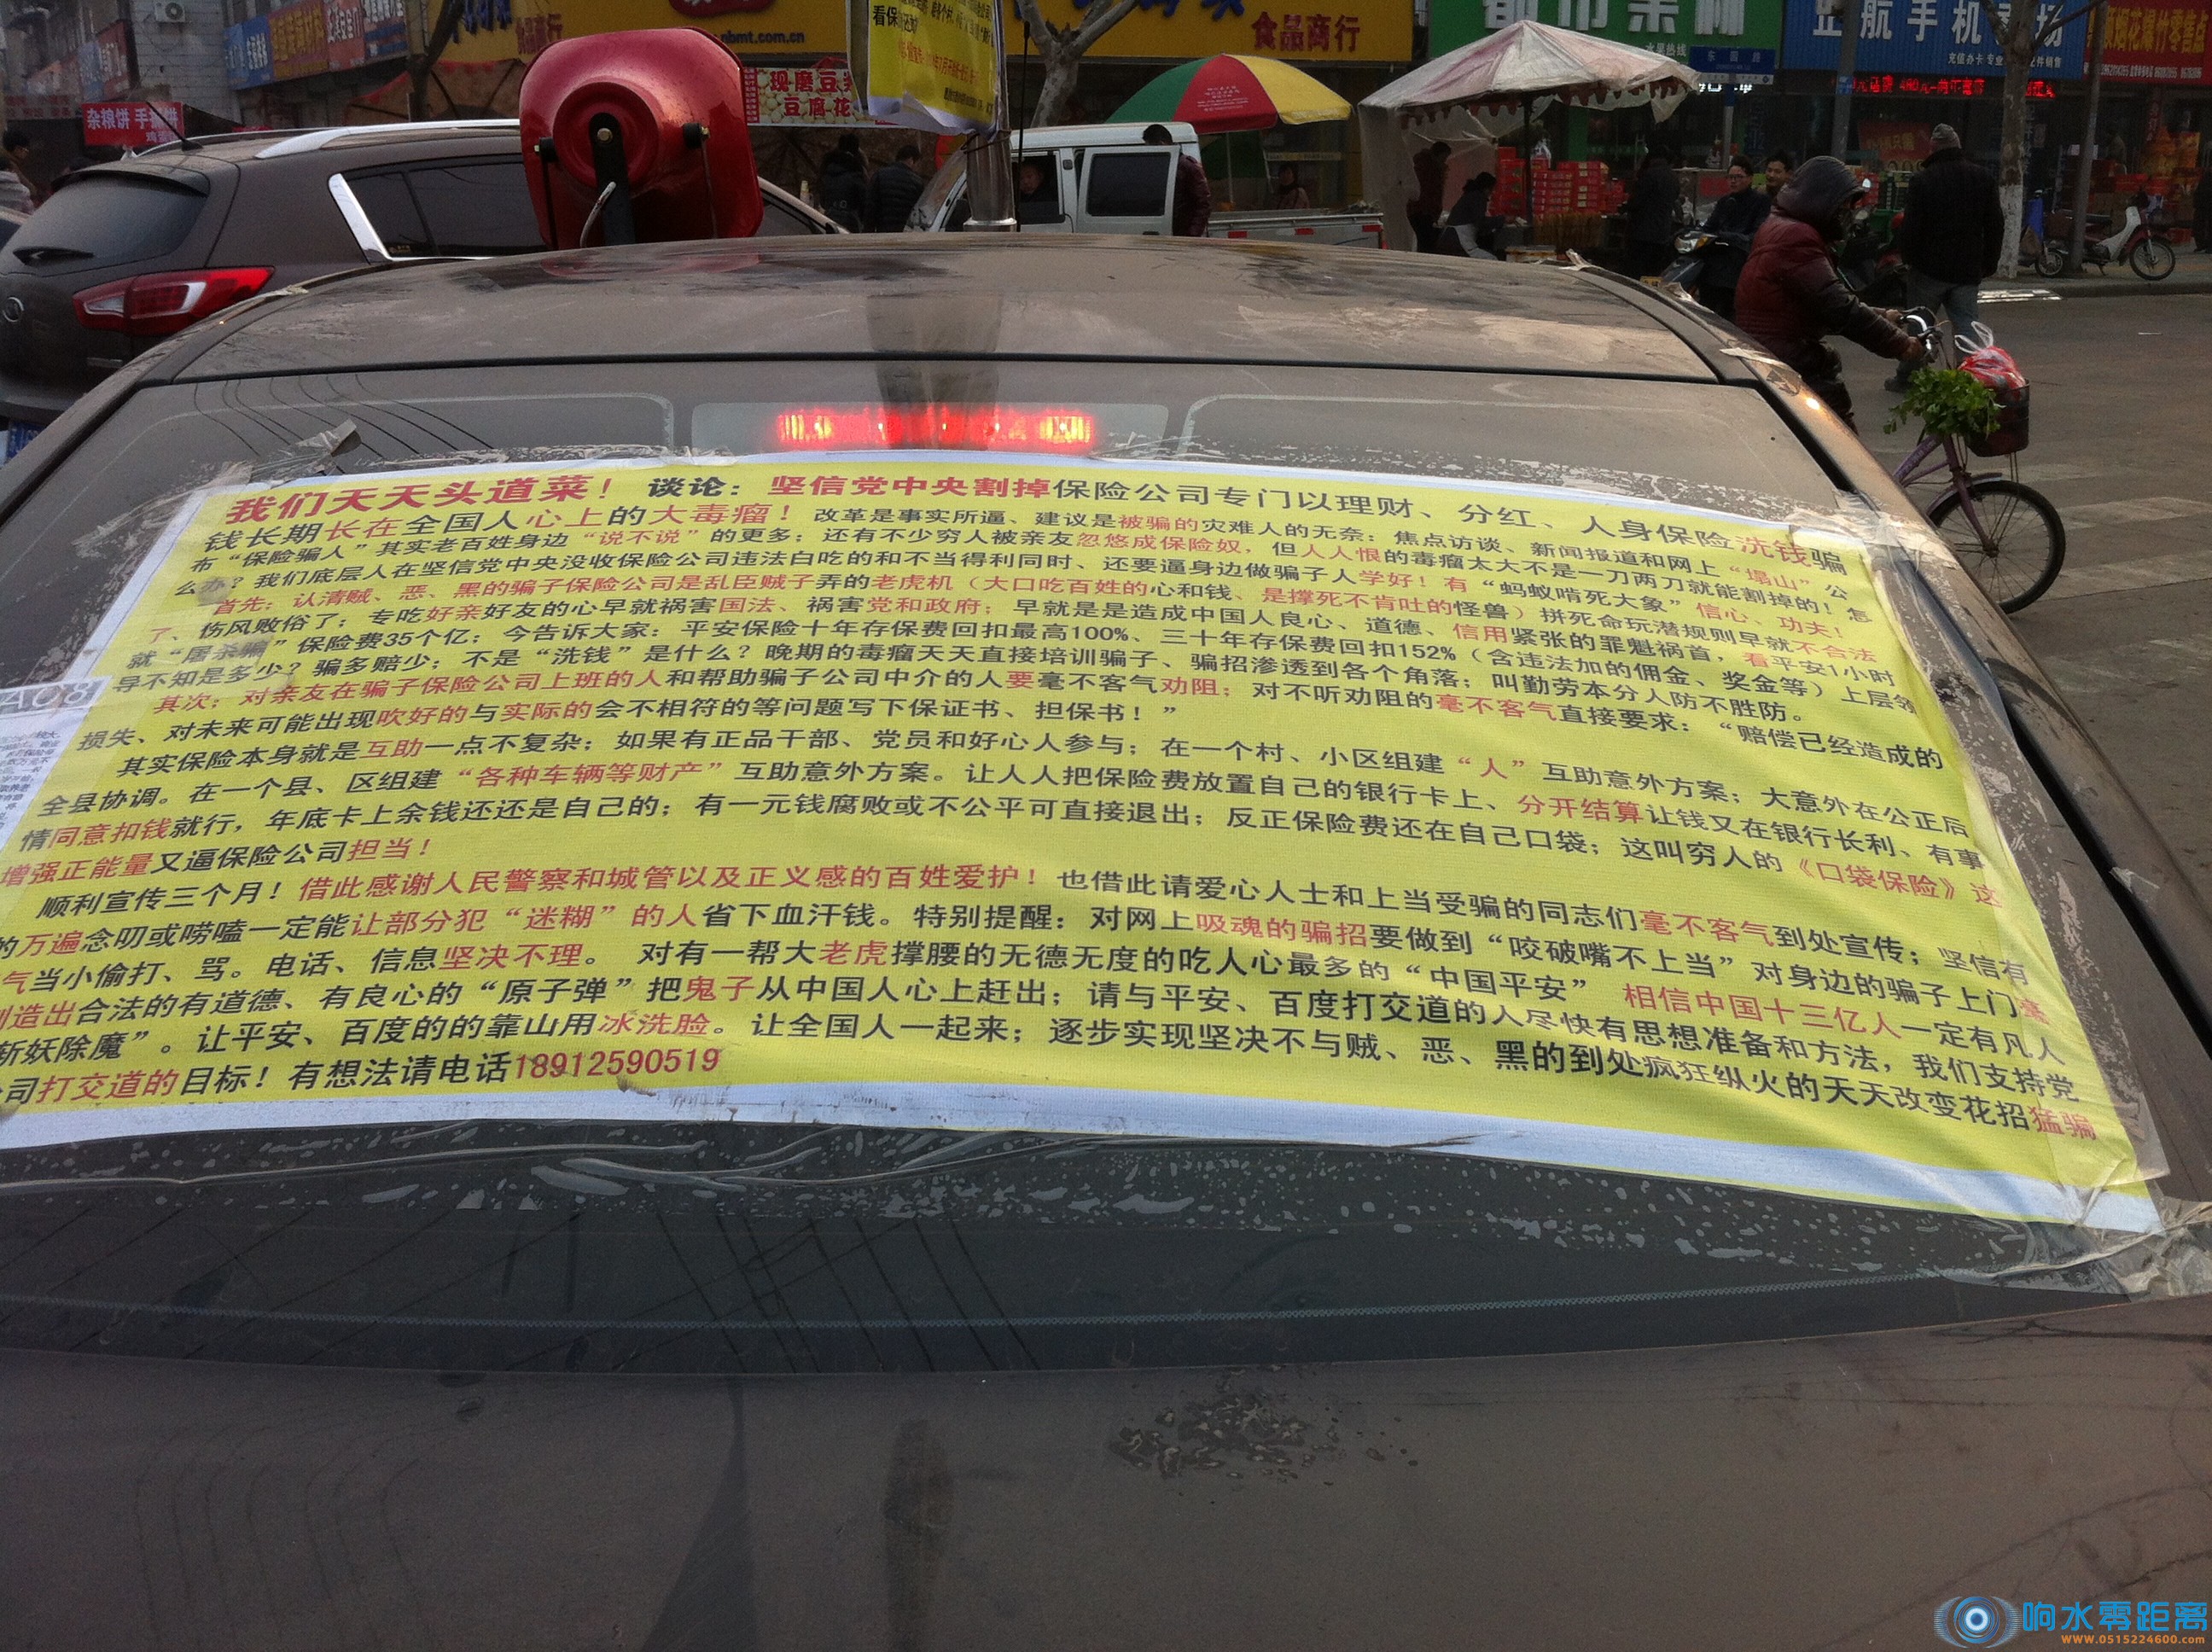 看保
食品商行
食品商行
bmt.com.cn
水果热线
航手机卖场
充值办卡
烟花爆竹零售店
东园路
现磨豆浆
豆腐花
杂粮饼 手抓饼
我们天天头道菜！ 谈论：坚信党中央割掉保险公司专门以理财、分红、人身保险洗钱骗
钱长期长在全国人心上的大毒瘤！改革是事实所逼、建议是被骗的灾难人的无奈：焦点访谈、新闻报道和网上“塌山”公
布“保险骗人”其实老百姓身边“说不说”的更多；还有不少穷人被亲友忽悠成保险奴，但人人恨的毒瘤太大不是一刀两刀就能割掉的！怎
么办？我们底层人在坚信党中央没收保险公司违法白吃的和不当得利同时、还要逼身边做骗子人学好！有“蚂蚁啃死大象”信心、功夫！
首先；认清贼、恶、黑的骗子保险公司是乱臣贼子弄的老虎机（大口吃百姓的心和钱、是撑死不肯吐的怪兽）拼死命玩潜规则早就不合法
了、伤风败俗了；专吃好亲好友的心早就祸害国法、祸害党和政府；早就是是造成中国人良心、道德、信用紧张的罪魁祸首，看平安1小时
就“屠杀骗”保险费35个亿；今告诉大家：平安保险十年存保费回扣最高100%、三十年存保费回扣152%（含违法加的佣金、奖金等）上层领
导不知是多少？骗多赔少；不是“洗钱”是什么？晚期的毒瘤天天直接培训骗子、骗招渗透到各个角落；叫勤劳本分人防不胜防。
其次；对亲友在骗子保险公司上班的人和帮助骗子公司中介的人要毫不客气劝阻；对不听劝阻的毫不客气直接要求：“赔偿已经造成的
损失、对未来可能出现吹好的与实际的会不相符的等问题写下保证书、担保书！”
其实保险本身就是互助一点不复杂；如果有正品干部、党员和好心人参与；在一个村、小区组建“人”互助意外方案；大意外在公正后
全县协调。在一个县、区组建“各种车辆等财产”互助意外方案。让人人把保险费放置自己的银行卡上、分开结算让钱又在银行长利、有事
情同意扣钱就行，年底卡上余钱还还是自己的；有一元钱腐败或不公平可直接退出；反正保险费还在自己口袋；这叫穷人的《口袋保险》这
增强正能量又逼保险公司担当！
顺利宣传三个月！借此感谢人民警察和城管以及正义感的百姓爱护！也借此请爱心人士和上当受骗的同志们毫不客气到处宣传；坚信有
的万遍念叨或唠嗑一定能让部分犯“迷糊”的人省下血汗钱。特别提醒：对网上吸魂的骗招要做到“咬破嘴不上当”对身边的骗子上门毫
气当小偷打、骂。电话、信息坚决不理。 对有一帮大老虎撑腰的无德无度的吃人心最多的“中国平安” 相信中国十三亿人一定有凡人
制造出合法的有道德、有良心的“原子弹”把鬼子从中国人心上赶出；请与平安、百度打交道的人尽快有思想准备和方法，我们支持党
斩妖除魔”。让平安、百度的的靠山用冰洗脸。让全国人一起来；逐步实现坚决不与贼、恶、黑的到处疯狂纵火的天天改变花招猛骗
公司打交道的目标！有想法请电话18912590519
响水零距离
www.0515224600.com